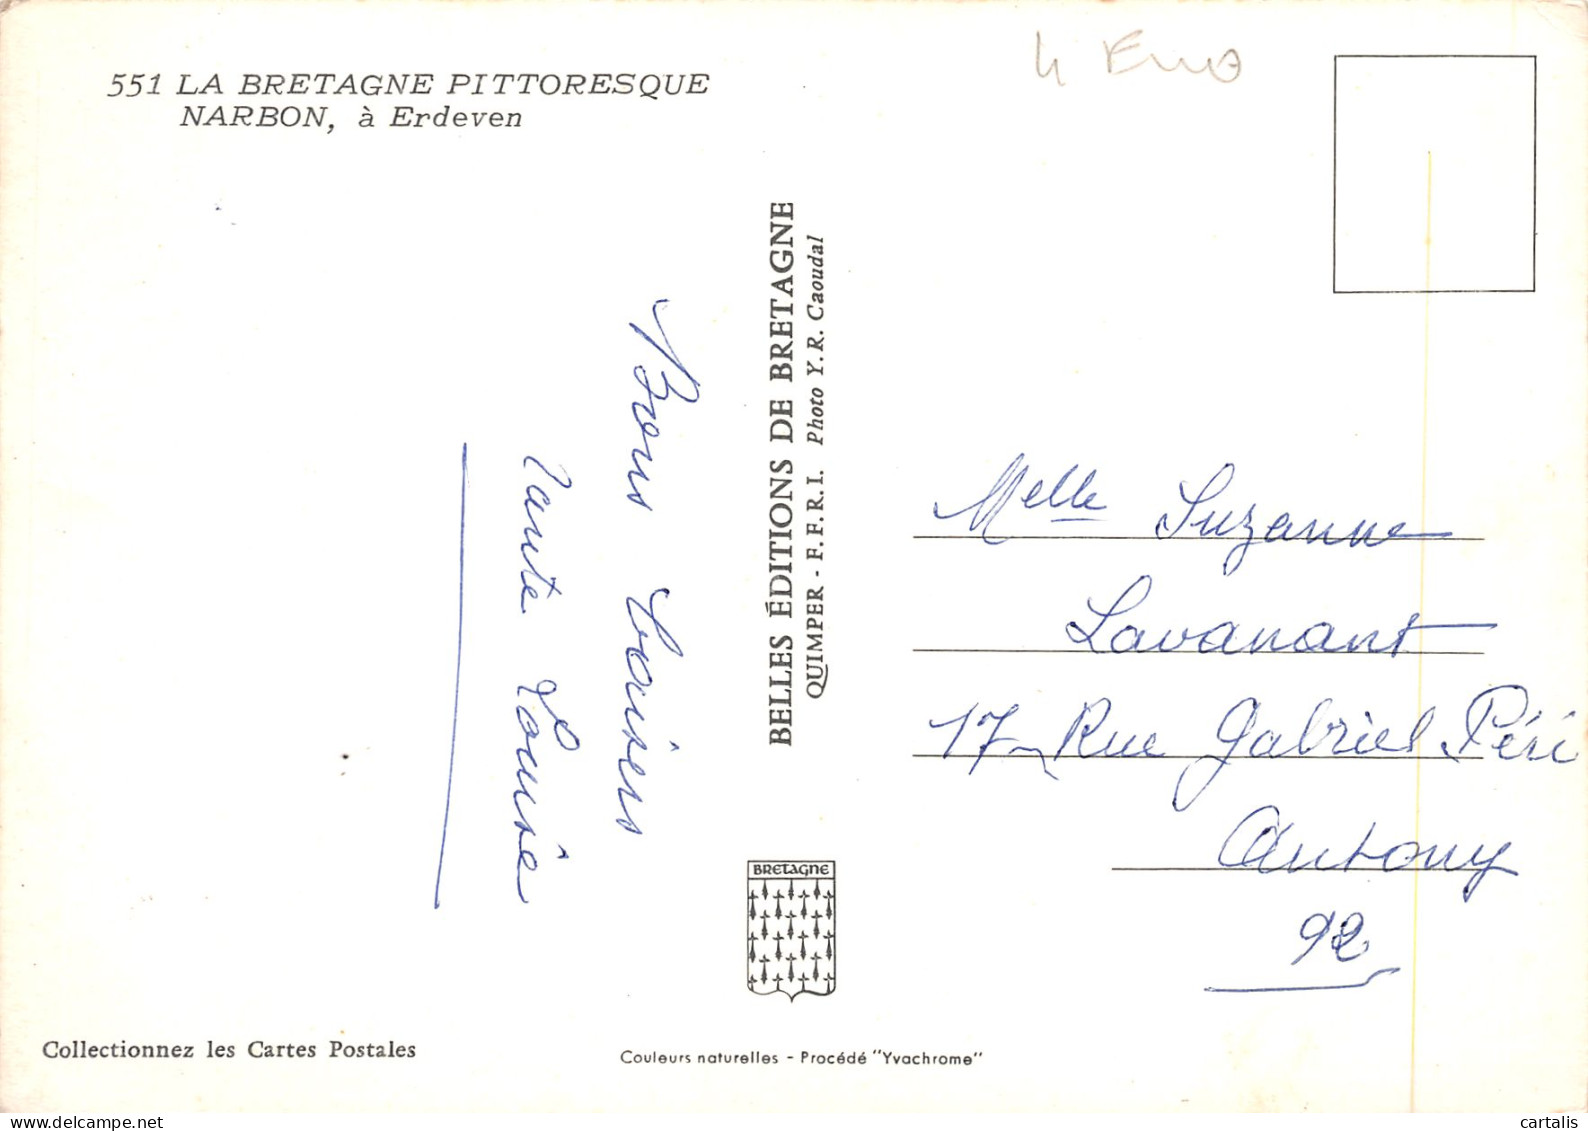 4 Euro
551 LA BRETAGNE PITTORESQUE
NARBON, à Erdeven
Bons baisers
Tante Louise
BELLES ÉDITIONS DE BRETAGNE
QUIMPER - F.F.R.I. Photo Y.R. Caoudal
Melle Suzanne
Lavanant
17, Rue Gabriel Péri
Antony
92
BRETAGNE
Collectionnez les Cartes Postales
Couleurs naturelles - Procédé "Yvachrome"
cartalis